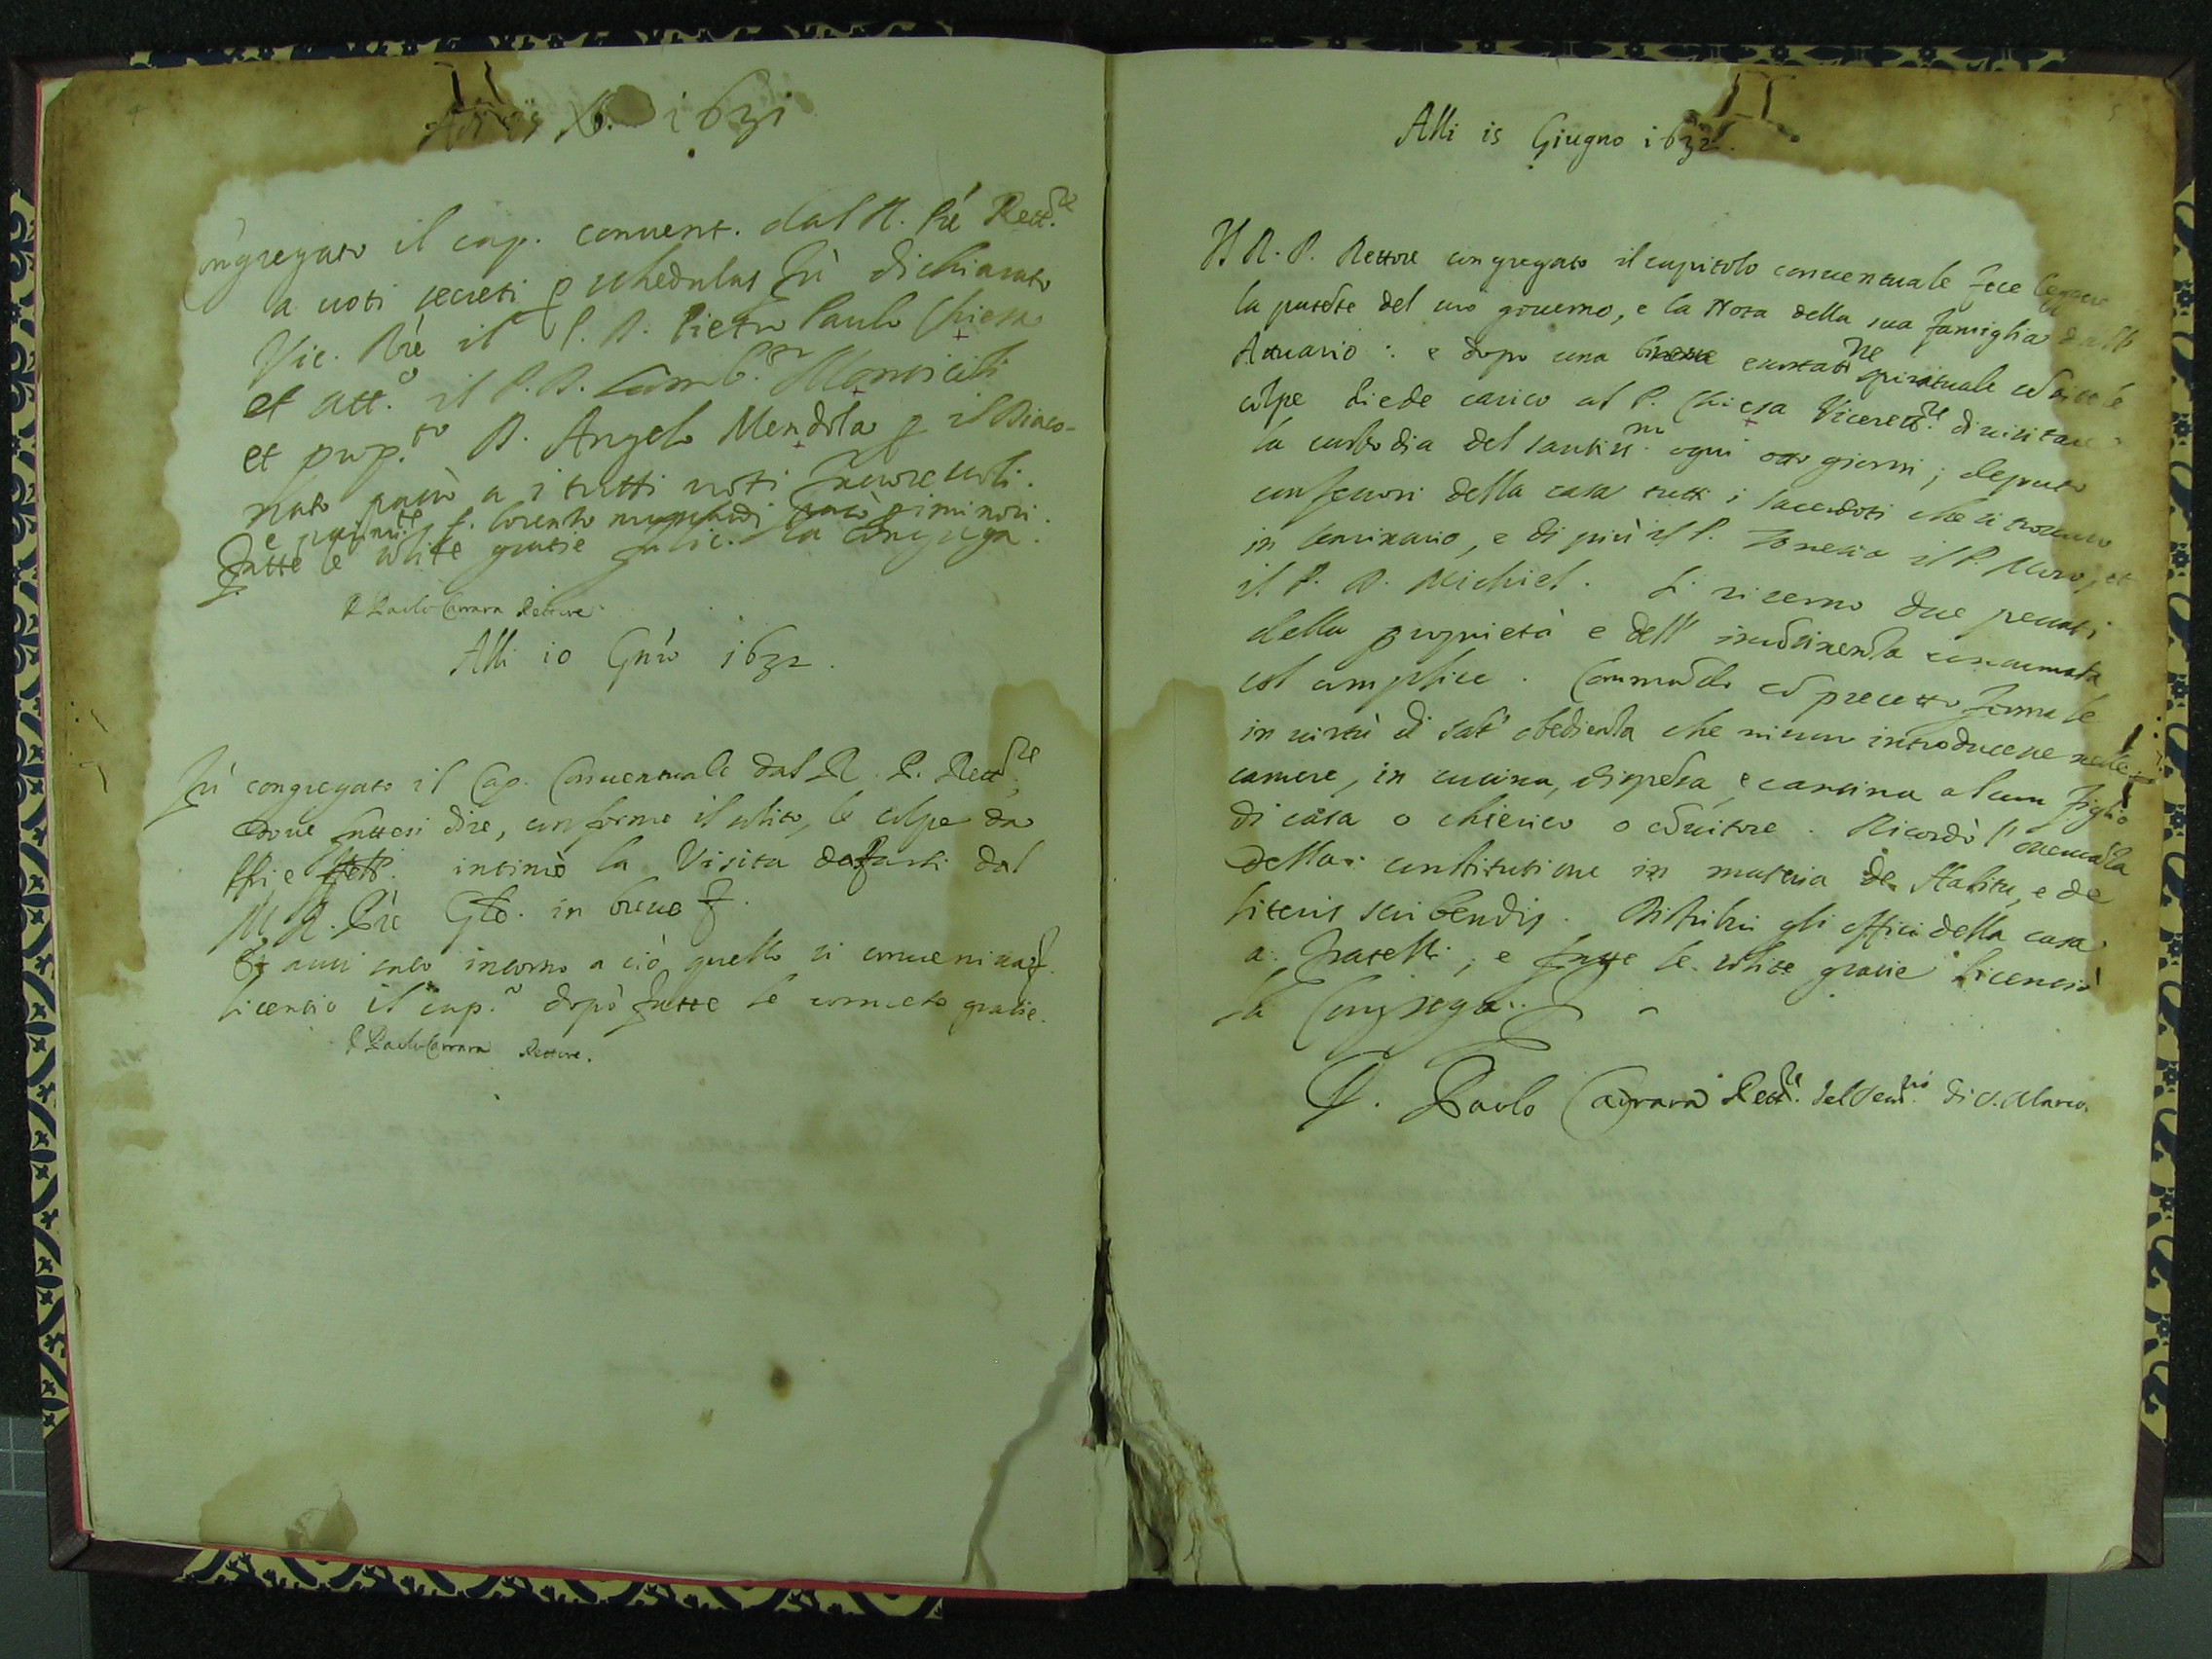 1631
Congregato il cap. conuent. dal R. Pre Rett.re
a uoti secreti p schedulas fù dichiarato
Vic. Rre il P. D. Pietro Paulo Chiesa
et att.o il P. D.
et prop.to D. Angelo Mendola p il Diaco-
nato passò a i tutti uoti fauoreuoli.
e parim.te f. Lorento passò p i minori.
Fatte le solite gratie fu lic. la congrega.
D Paolo Carrara Rettore
Alli 10 Gnro 1632.
Fù congregato il Cap. Conuentuale dal R. P. Rett.re,
doue fattosi dire, conforme il solito, le colpe da
intimò la Visita da farsi dal
M. R. Pre Gle. in breue
intorno a ciò quello si conueniua
licentio il cap.o dopò fatte le consuete gratie.
D Paolo Carrara Rettore.
5
Alli 15 Giugno 1632.
Il R. P. Rettore congregato il capitolo conuentuale fece leggere
la patete del suo gouerno, e la Nota della sua famiglia dall
Attuario: e dopo una breue esortat.ne spirituale
colpe diede carico al P. Chiesa Vicerett.re di uisitare
la custodia del santiss.mo ogni otto giorni; deputò
confessori della casa tutti i sacerdoti che si trouano
in seminario, e di più il P. il P. Moro, et
il P. D. Michiel. Si riserno due peccati
della proprietà e dell' consumata
col complice. Commadò cō precetto formale
in uirtù di satª obedieza che niuno introducesse nelle
camere, in cucina, dispesa, e cantina alcun figlio
di casa o chierico o cōuitore. Ricordò l'
della constitutione in materia de Habitu, e de
literis scribendis. Distribuì gli officii della casa
a fratelli; e fatte le solite gratie licentiò
la Congrega.
D. Paolo Carrara Rett.re del Sem.rio di S. Marco.